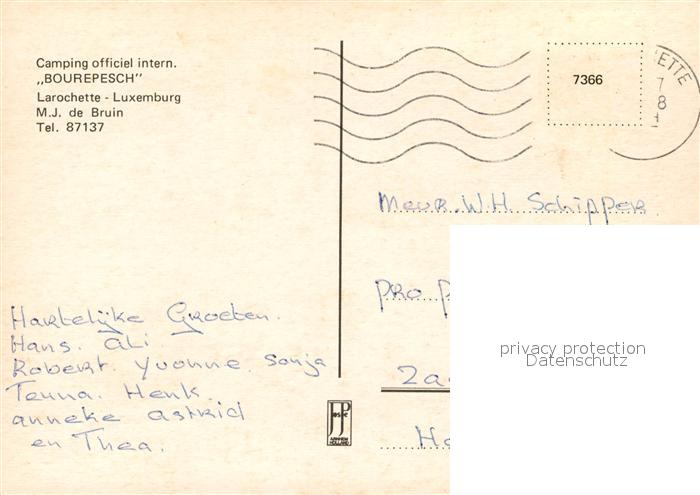 Camping officiel intern.
„BOUREPESCH"
Larochette - Luxemburg
M.J. de Bruin
Tel. 87137
7366
ETTE
7
8
Mevr. W.H. Schipper
pro p
privacy protection
Datenschutz
Za
Ho
Hartelijke Groeten.
Hans. Ali
Robert. Yvonne. Sonja
Teuna. Henk.
anneke astrid
en Thea.
JosPé
ARNHEM
HOLLAND